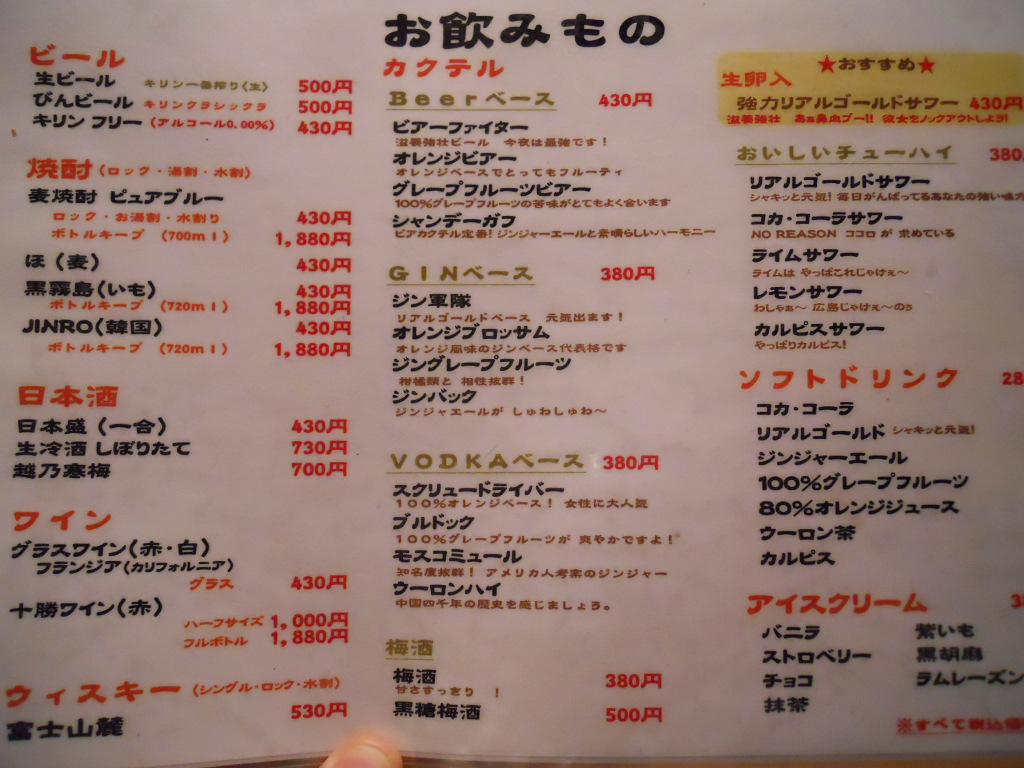 お飲みもの
ビール
生ビール キリン一番搾り〈生〉 500円
びんビール キリンクラシックラ 500円
キリン フリー (アルコール0.00%) 430円
焼酎 (ロック・湯割・水割)
麦焼酎 ピュアブルー
ロック・お湯割・水割り 430円
ボトルキープ (700ml) 1,880円
ほ (麦) 430円
黒霧島(いも) 430円
ボトルキープ (720ml) 1,880円
JINRO(韓国) 430円
ボトルキープ (720ml) 1,880円
日本酒
日本盛 (一合) 430円
生冷酒 しぼりたて 730円
越乃寒梅 700円
ワイン
グラスワイン(赤・白)
フランジア(カリフォルニア)
グラス 430円
十勝ワイン(赤)
ハーフサイズ 1,000円
フルボトル 1,880円
ウィスキー (シングル・ロック・水割)
530円
富士山麓
カクテル
Beerベース 430円
ビアーファイター
滋養強壮ビール 今夜は最強です!
オレンジビアー
オレンジベースでとってもフルーティ
グレープフルーツビアー
100%グレープフルーツの苦味がとてもよく合います
シャンデーガフ
ビアカクテル定番!ジンジャーエールと素晴らしいハーモニー
GINベース 380円
ジン軍隊
リアルゴールドベース 元気出ます!
オレンジブロッサム
オレンジ風味のジンベース代表格です
ジングレープフルーツ
柑橘類と 相性抜群!
ジンバック
ジンジャエールが しゅわしゅわ〜
VODKAベース 380円
スクリュードライバー
100%オレンジベース! 女性に大人気
ブルドック
100%グレープフルーツが 爽やかですよ!
モスコミュール
知名度抜群! アメリカ人考案のジンジャー
ウーロンハイ
中国四千年の歴史を感じましょう。
梅酒
梅酒 380円
甘さすっきり !
黒糖梅酒 500円
★おすすめ★
生卵入
強力リアルゴールドサワー 430円
滋養強壮 あぁ鼻血ブー!! 彼女をノックアウトしよう!
おいしいチューハイ 380
リアルゴールドサワー
シャキッと元気!毎日がんばってるあなたの強い味方
コカ・コーラサワー
NO REASON ココロ が 求めている
ライムサワー
ライムは やっぱこれじゃけぇ〜
レモンサワー
わしゃぁ〜 広島じゃけぇ〜のぅ
カルピスサワー
やっぱりカルピス!
ソフトドリンク 28
コカ・コーラ
リアルゴールド シャキッと元気!
ジンジャーエール
100%グレープフルーツ
80%オレンジジュース
ウーロン茶
カルピス
アイスクリーム 3
バニラ 紫いも
ストロベリー 黒胡麻
チョコ ラムレーズン
抹茶
※すべて税込価